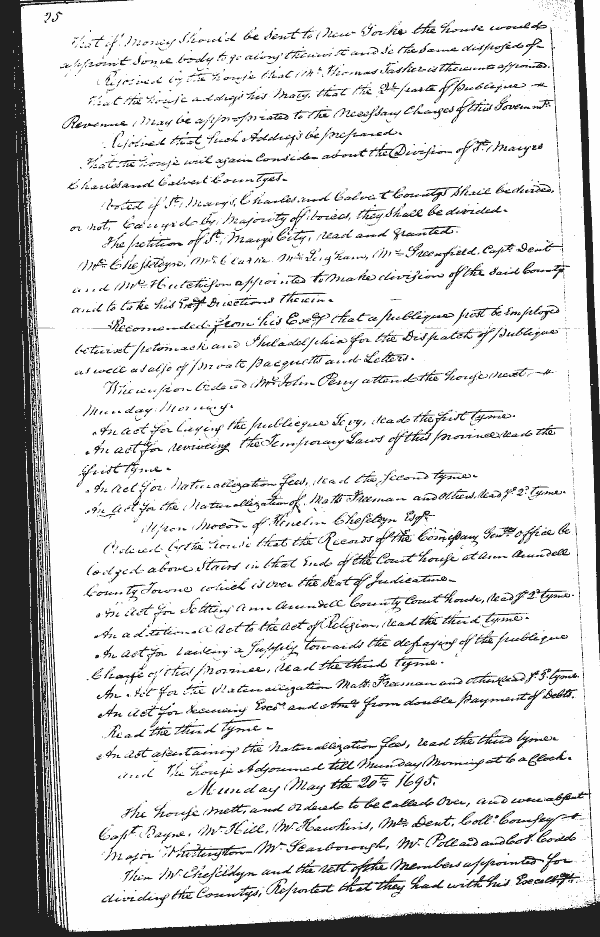 25
that if Money Should be Sent to New Yorke the house would
appoint Some body to go along therewith and Se the Same disposed of
Resolved by the house that Mr. Thomas Tasker is thereunto appointed.
That the house address his Maty. that the 3d parte of publique
Revenue, may be appropriated to the Necessary Charges of this Governmt.
Resolved that Such Address be prepared.
That the house will again Consider about the Division of St. Maryes
Charles and Calvert Countyes.
Voted if St. Marys, Charles and Calvert Countys Shall be divided,
or not, Carryed by Majority of Voices, they Shall be divided.
The petition of St. Marys City, read and granted.
Mr. Cheseldyn, Mr. Clarke Mr. Bigham, Mr. Greenfield, Capt. Dent
and Mr. Hutchison appointed to make division of the said County
and to take his Exy Directions therein.
Recomended from his Exy that a publique post be Employed
betwixt potomack and Philadelphia for the Dispatch of publique
as well as also of private pacquetts and Letters.
Whereupon Ordered Mr. John Perry attend the house next
Munday Morning.
An act for laying the publicque Levy, read the first tyme.
An act for reviveing the Temporary Laws of this province read the
first tyme.
An Act for Naturalization fees, read the Second tyme.
An Act for the Naturalization of Matt. Freeman and others, read ye 2d. tyme.
Upon mocon of Kenelm Cheseldyn Esqr.
Ordered by the house that the Records of the Comissary Genlls office be
lodged above Stairs in that End of the Court house at Ann Arundell
County Towne which is over the Seat of Judicature.
An act for Setting Ann Arundell County Court house, read ye 2d tyme.
An additionall Act to the Act of Religion, read the third tyme.
An act for raiseing a Supply towards the defraying of the publique
Charge of this province, read the third tyme.
An Act for the Naturalization Matt. Freeman and others read ye 3d. tyme
An Act for Secureing Excrs. and Amrs. from double payment of Debts.
Read the third tyme.
An Act ascertaining the Naturalization fees, read the third tyme
and The house Adjourned till Munday Morning at 6 a Clock.
Munday May the 20th. 1695.
The house mett, and ordered to be called Over, and were absent
Capt. Bayne, Mr. Hill, Mr. Hawkins, Mr. Dent, Coll. Coursey
Major Whittington Mr. Scarborough, Mr. Pollard and Col. Coad
Then Mr. Cheseldyn and the rest of the Members appointed for
dividing the Countys, Reported that they had with his Excellys.